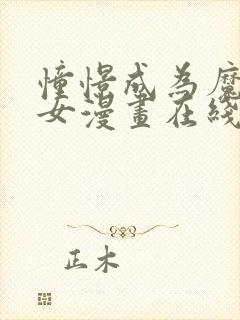 憧憬成為魔
女漫畫在綫
正木